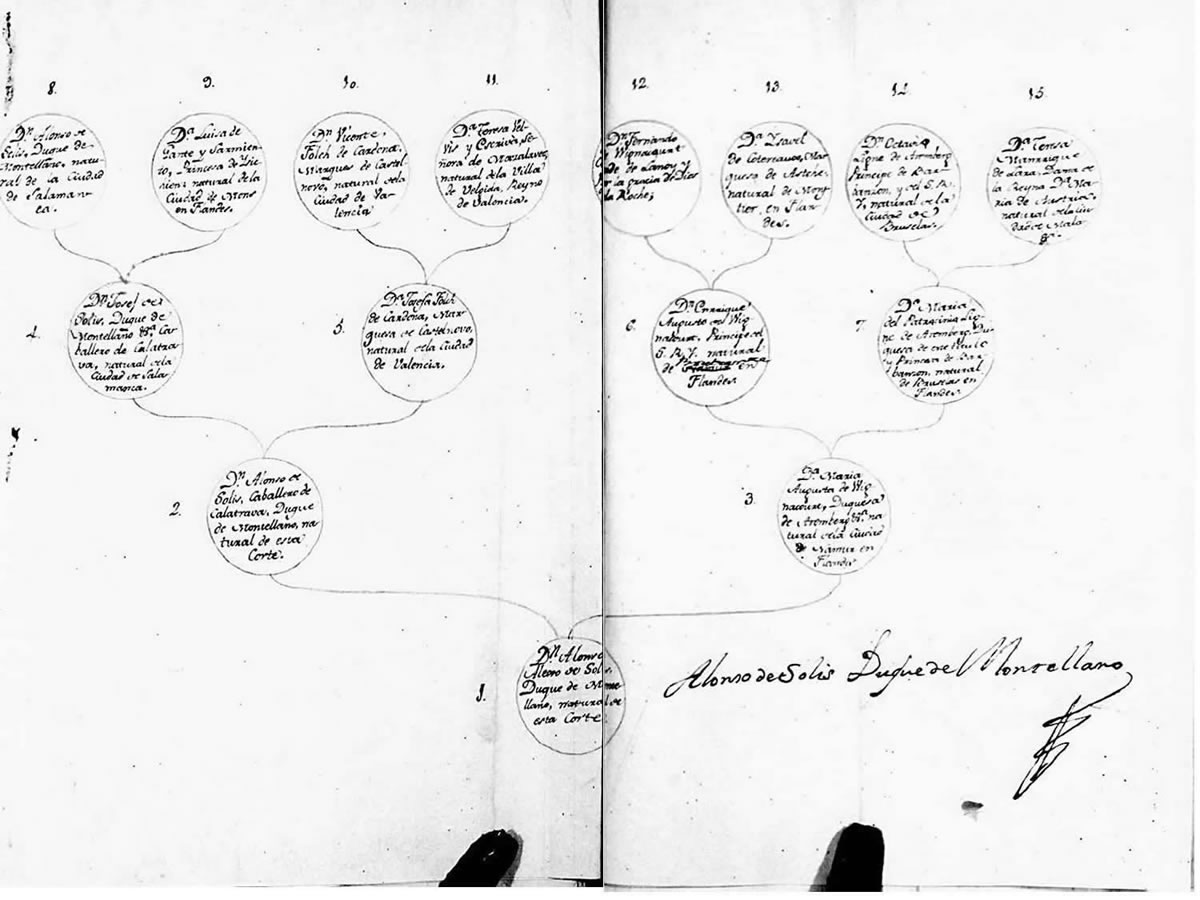 8.
Dⁿ. Alonso de
Solis, Duque de
Montellano, natu-
ral de la Ciudad
de Salaman-
ca.
9.
Dª. Luisa de
Gante y Sarmien-
to, Princesa de
natural de la
Ciudad de Mons
en Flandes.
10.
Dⁿ. Vicente
Folch de Cardona,
Marques de Castel-
novo, natural de la
Ciudad de Va-
lencia
11.
Dª. Teresa Vel-
vis y Escriva, Se-
ñora de
natural de la Villa
de Velgida, Reyno
de Valencia.
12.
Dⁿ. Fernando
de Wignacourt
de de Lanoy y
por la gracia de Dios
la Roche,
13.
Dª. Ysavel
de Mar-
quesa de
natural de
en Flan-
des.
14.
Dⁿ. Octavio
Ligne de Aremberg
Principe de Bar-
banzon, y del S. R.
Y, natural de la
Ciudad de
Bruselas.
15.
Dª. Teresa
Manrrique
de Lara, Dama de
la Reyna Dª. Ma-
ria de Austria,
natural de la Ciu-
dad de Mala
gª.
4.
Dⁿ. Josef de
Solis, Duque de
Montellano &ª. Ca-
ballero de Calatra-
va, natural de la
Ciudad de Sala-
manca.
5.
Dª. Josefa Folch
de Cardona, Mar-
quesa de Castelnovo,
natural de la Ciudad
de Valencia.
6.
Dⁿ. Enrrique
Augusto de Wig-
nacourt, Principe del
S. R. Y. natural
de en
Flandes.
7.
Dª. Maria
del Patrocinio Lig-
ne de Aremberg, Du-
quesa de este titulo
y Princesa de Bar-
banzon, natural
de Bruselas en
Flandes.
2.
Dⁿ. Alonso de
Solis, Caballero de
Calatrava, Duque
de Montellano, na-
tural de esta
Corte.
3.
Dª. Maria
Augusta de Wig-
nacourt, Duquesa
de Aremberg &ª. na-
tural de la Ciudad
de Namur en
Flandes
1.
Dⁿ. Alonso
de Solis,
Duque de Monte-
llano, natural de
esta Corte.
Alonso de Solis Duque de Montellano